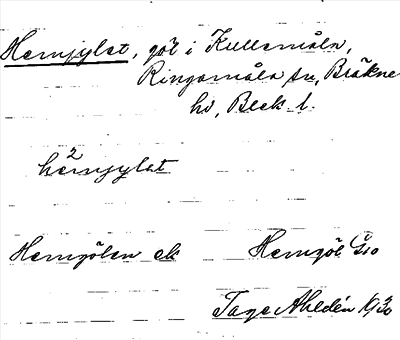 Hemjylet, göl i Kullemåla,
Ringamåla sn, Bräkne
hd, Blek. l.
2
hemjylet
Hemgölen ek Hemgöl Gso
Tage Ahldén 1930